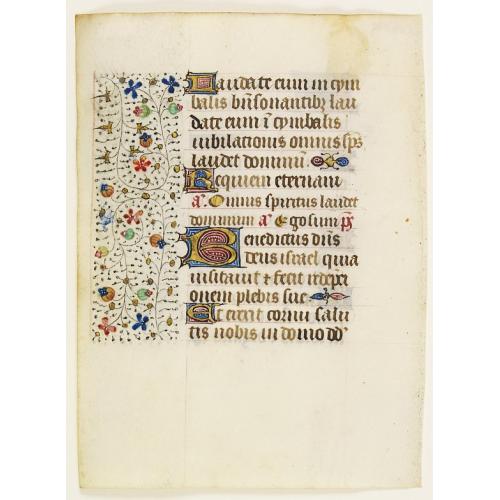 Laudate eum in cym
balis bñsonantibz lau
date eum ī cymbalis
iubilationis omnis sps
laudet dominū
Requiem eternam
a. Omnis spiritus laudet
dominum a. Ego sum ps
Benedictus dñs
deus israel quia
visitavit et fecit redepti
onem plebis sue
Et erexit cornu salu
tis nobis in domo dd